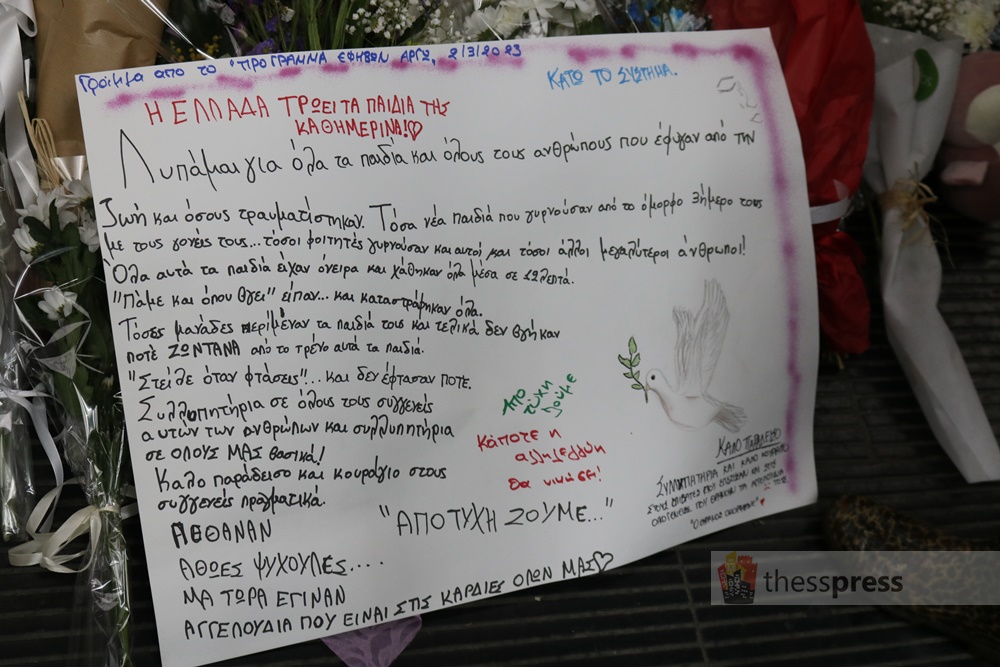 Γράμμα απο το "ΠΡΟΓΡΑΜΜΑ ΕΦΗΒΩΝ ΑΡΓΩ, 2/3/2023
ΚΑΤΩ ΤΟ ΣΥΣΤΗΜΑ.
Η ΕΛΛΑΔΑ ΤΡΩΕΙ ΤΑ ΠΑΙΔΙΑ ΤΗΣ
ΚΑΘΗΜΕΡΙΝΑ!♡
Λυπάμαι για όλα τα παιδία και όλους τους ανθρώπους που έφυγαν από την
Ζωή και όσους τραυματίστηκαν. Τόσα νέα παιδιά που γυρνούσαν από το όμορφο 3ήμερο τους
με τους γονείς τους... τόσοι φοιτητές γυρνούσαν και αυτοί και τόσοι άλλοι μεγαλύτεροι άνθρωποι!
Όλα αυτά τα παιδία είχαν όνειρα και χάθηκαν όλα μέσα σε 12λεπτά.
"Πάμε και όπου βγει" είπαν... και καταστράφηκαν όλα.
Τόσες μανάδες περίμεναν τα παιδιά τους και τελικά δεν βγήκαν
ποτέ ΖΩΝΤΑΝΑ από το τρένο αυτά τα παιδιά.
"Στείλε όταν φτάσεις"... και δεν έφτασαν ποτε.
Συλλυπητήρια σε όλους τους συγγενείς
αυτών των ανθρώπων και συλλυπητήρια
σε ΟΛΟΥΣ ΜΑΣ βασικά!
Καλο παράδεισο και κουράγιο στους
συγγενείς πραγματικά.
από
τύχη
ζούμε
Κάποτε η
αλληλεγγύη
θα νικήσει!
"ΑΠΟ ΤΥΧΗ ΖΟΥΜΕ..."
ΚΑΛΟ ΠΑΡΑΔΕΙΣΟ
ΣΥΛΛΥΠΗΤΗΡΙΑ ΚΑΙ ΚΑΛΟ ΚΟΥΡΑΓΙΟ
ΠΕΘΑΝΑΝ
ΑΘΩΕΣ ΨΥΧΟΥΛΕΣ....
ΜΑ ΤΩΡΑ ΕΓΙΝΑΝ
ΑΓΓΕΛΟΥΔΙΑ ΠΟΥ ΕΙΝΑΙ ΣΤΙΣ ΚΑΡΔΙΕΣ ΟΛΩΝ ΜΑΣ♡
thesspress